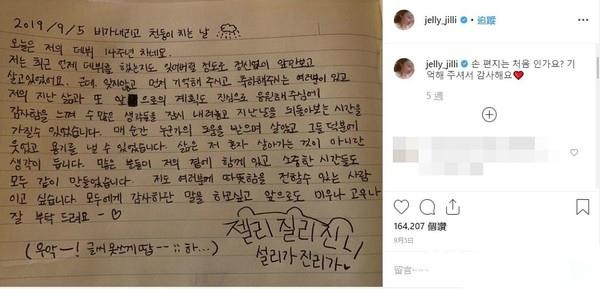 2019/9/5 비가내리고 천둥이 치는 날
오늘은 저의 데뷔 14주년 차네요.
저는 최근 언제 데뷔를 했는지도 잊어버릴 정도로 정신없이 앞만보고
살고있었어요. 근데. 잊지않고 먼저 기억해 주시고 축하해주시는 여러분이 있고
저의 지난 삶과 또 앞으로의 계획도 진심으로 응원해주심에
감사함을 느껴 수 많은 생각들을 잠시 내려놓고 지난날을 되돌아보는 시간을
가질수 있었습니다. 매 순간 누군가의 도움을 받으며 살았고 그들 덕분에
웃었고 용기를 낼 수 있었습니다. 삶은 저 혼자 살아가는 것이 아니란
생각이 듭니다. 많은 분들이 저의 곁에 함께 있고 소중한 시간들도
모두 같이 만들었습니다. 저도 여러분께 따뜻함을 전할수 있는 사람
이고 싶습니다. 모두에게 감사하단 말을 하고싶고 앞으로도 미우나 고우나
잘 부탁 드려요 ~ ♡
(우악~! 글씨 못쓰게땁 -- ;; 하...)
젤리 질리 진니
설리가 진리가♥
jelly_jilli • 追蹤
jelly_jilli 손 편지는 처음 인가요? 기
억해 주셔서 감사해요❤
5 週
164,207 個讚
9月5日
留言⋯⋯